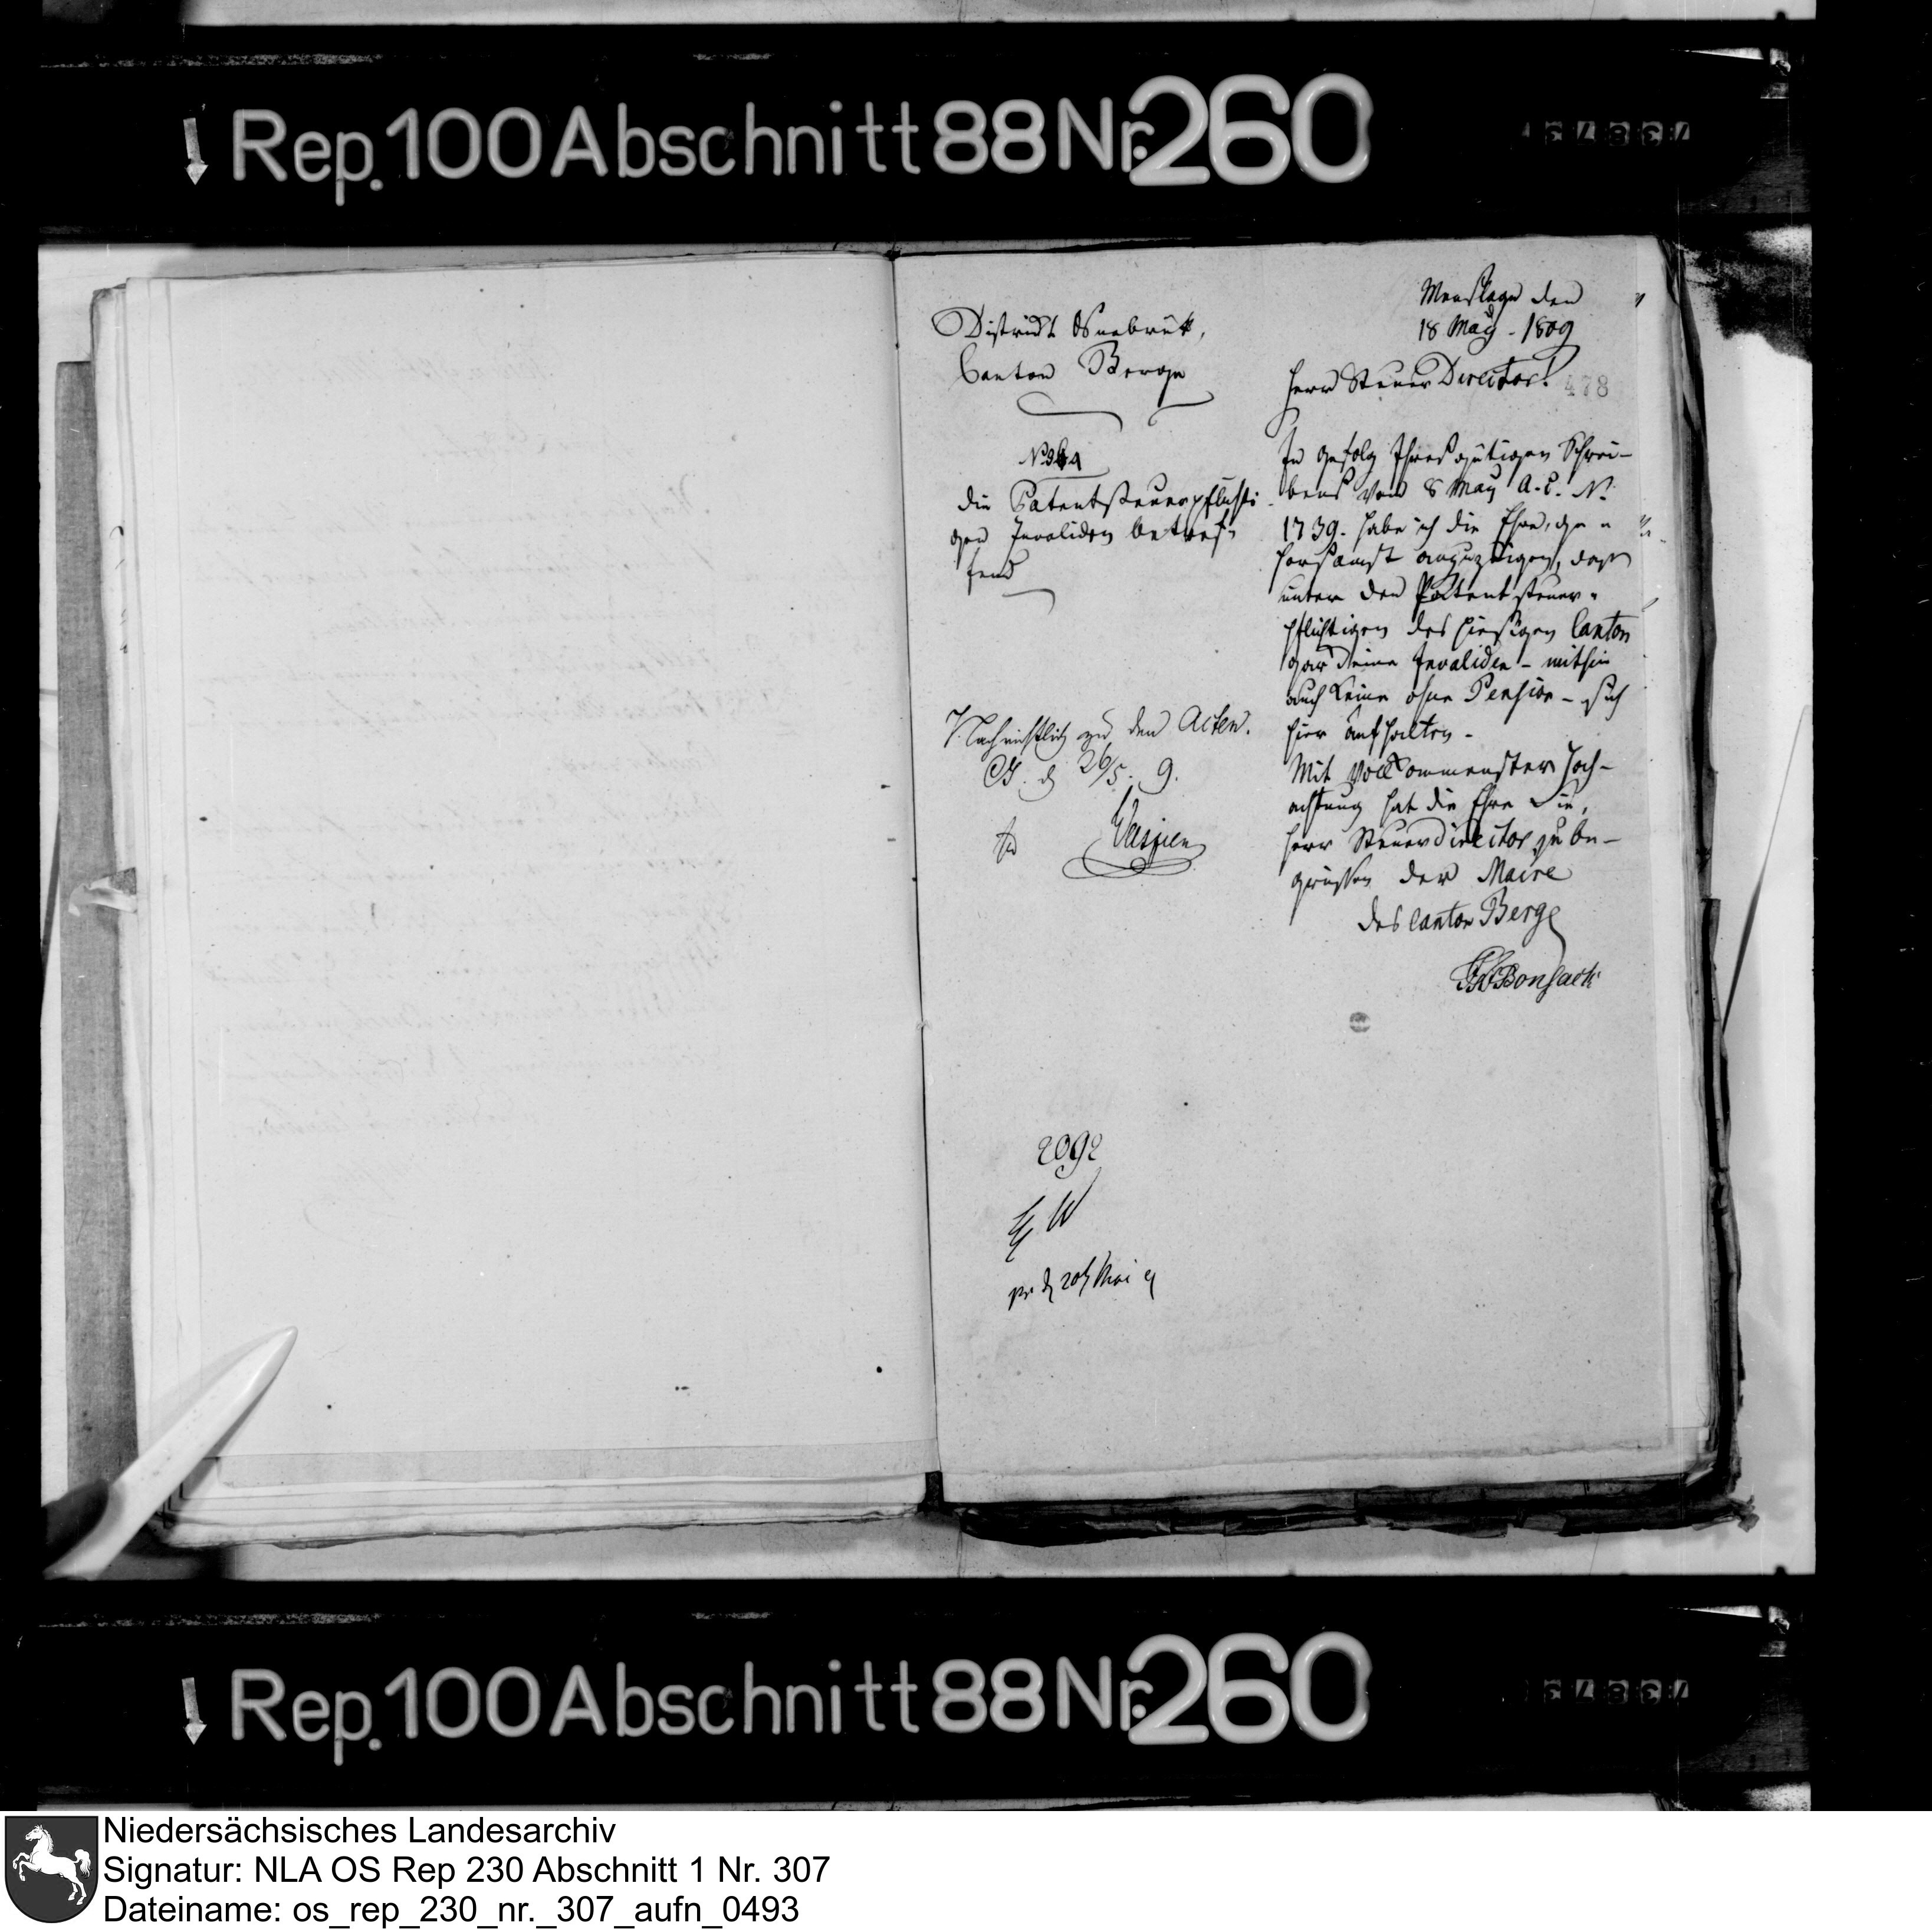 Rep. 100 Abschnitt 88 Nr. 260
Menslage den
18 May - 1809
District Osnabrük,
Canton Berge
Herr Steuer Director!
478
No
die Patentsteuerpflichti-
gen Invaliden betref-
fend
In gefolg Ihres gütigen Schrei-
bens vom 8 May a. c. N.
1739. habe ich die Ehre, ge-
horsamst anzuzeigen, daß
unter den Patentsteuer-
pflichtigen des hiesigen Canton
gar keine Invaliden - mithin
auch keine ohne Pension - sich
hier aufhalten -
Mit vollkommenster Hoch-
achtung hat die Ehre Sie,
Herr Steuerdirector zu be-
grüssen der Maire
des Canton Berge
Bonsack
Nachrichtlich zu den Acten.
d 26/5. 9.
2092
pr d 20t Mai 9
Rep. 100 Abschnitt 88 Nr. 260
Niedersächsisches Landesarchiv
Signatur: NLA OS Rep 230 Abschnitt 1 Nr. 307
Dateiname: os_rep_230_nr._307_aufn_0493